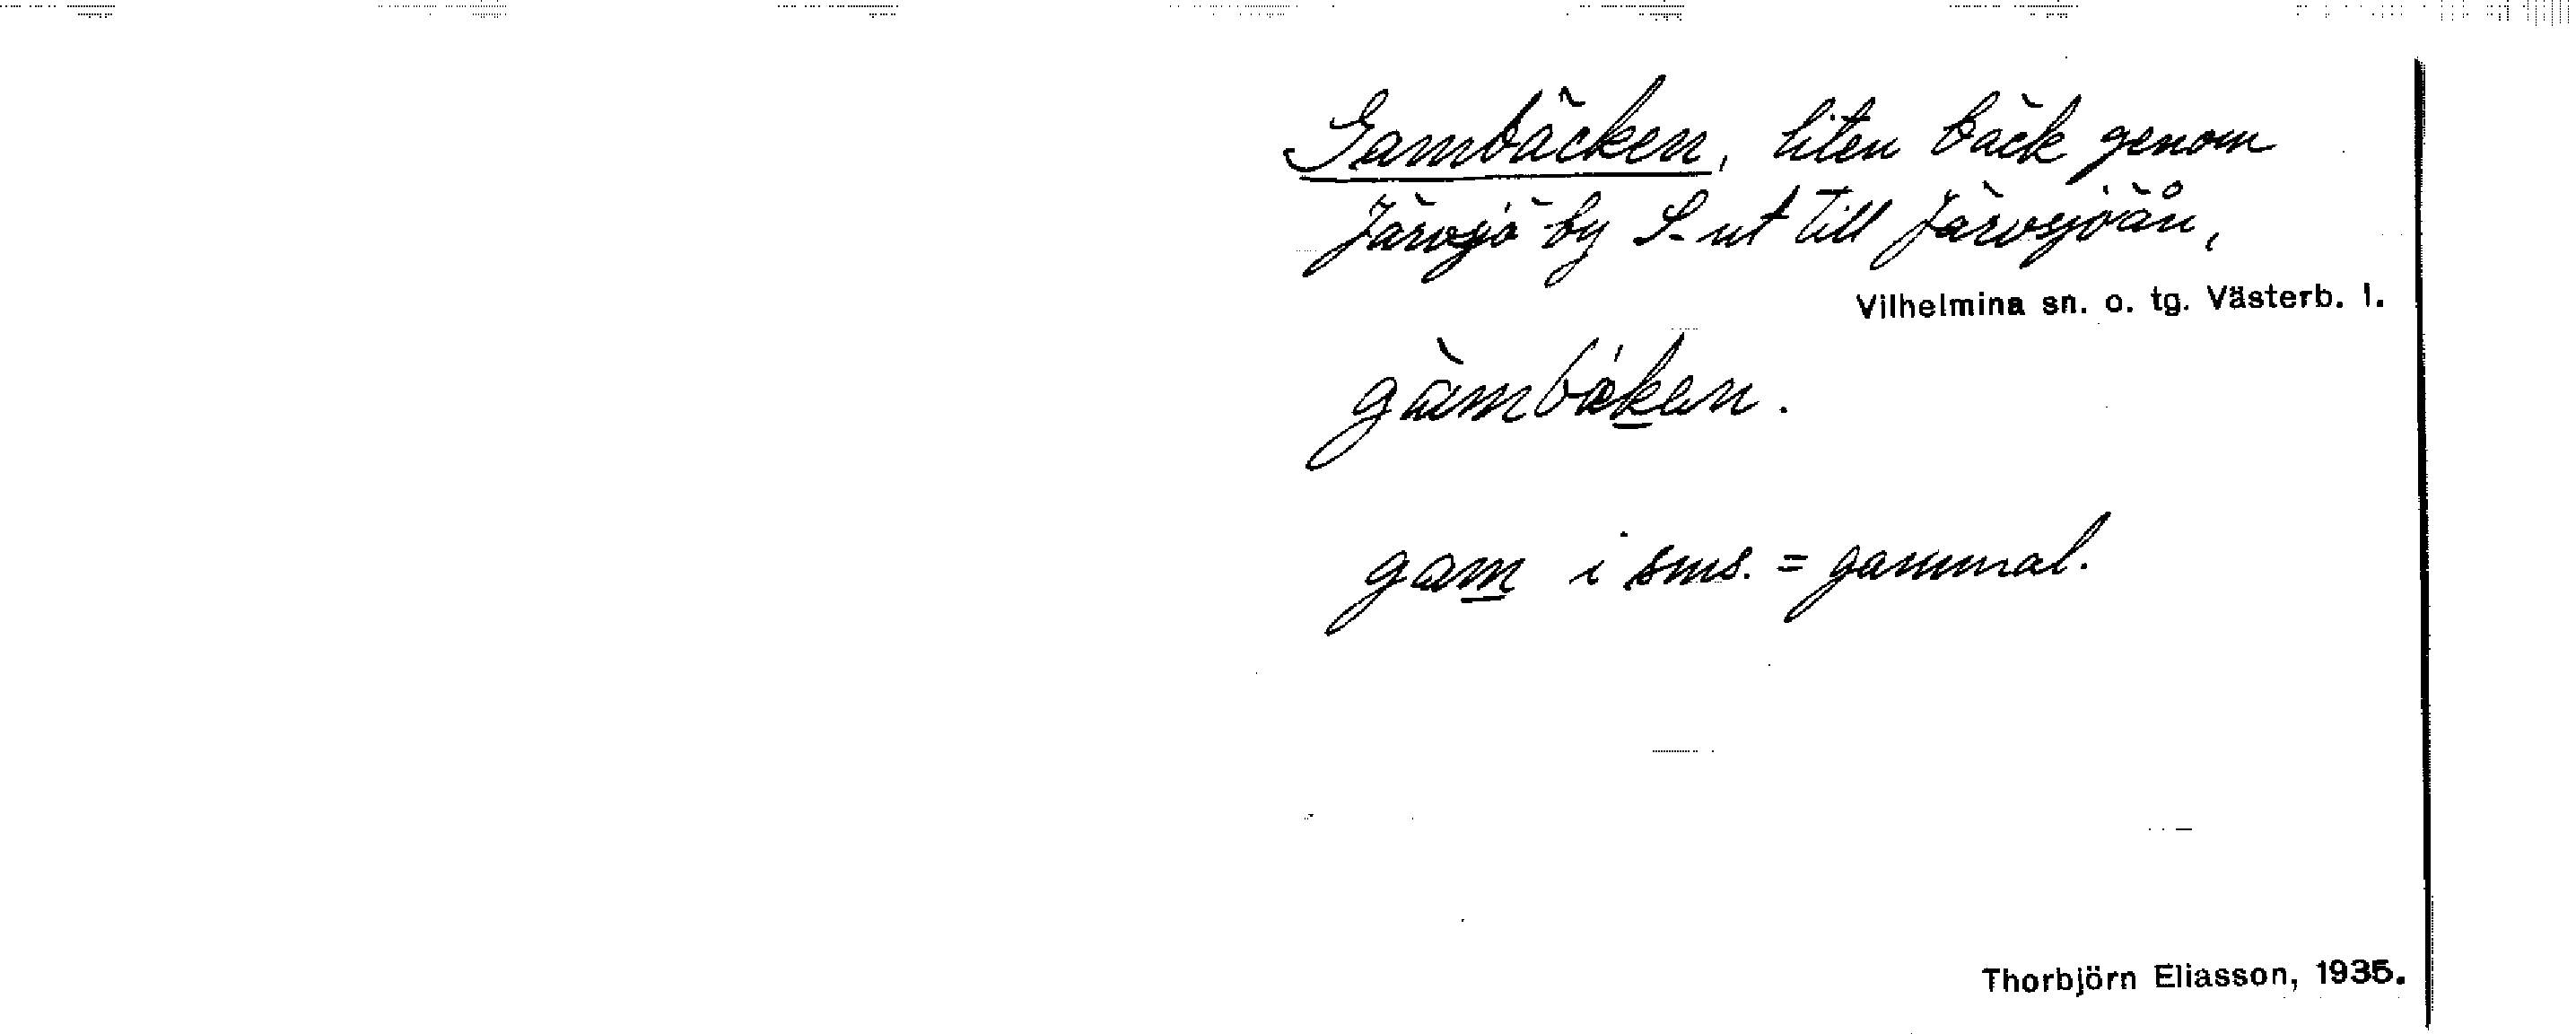 Gambäcken, liten bäck genom
Järvsjö by S. ut till Järvsjöån,
Vilhelmina sn. o. tg. Västerb. l.
gàmbä́ken.
gam i sms. = gammal.
Thorbjörn Eliasson, 1935.